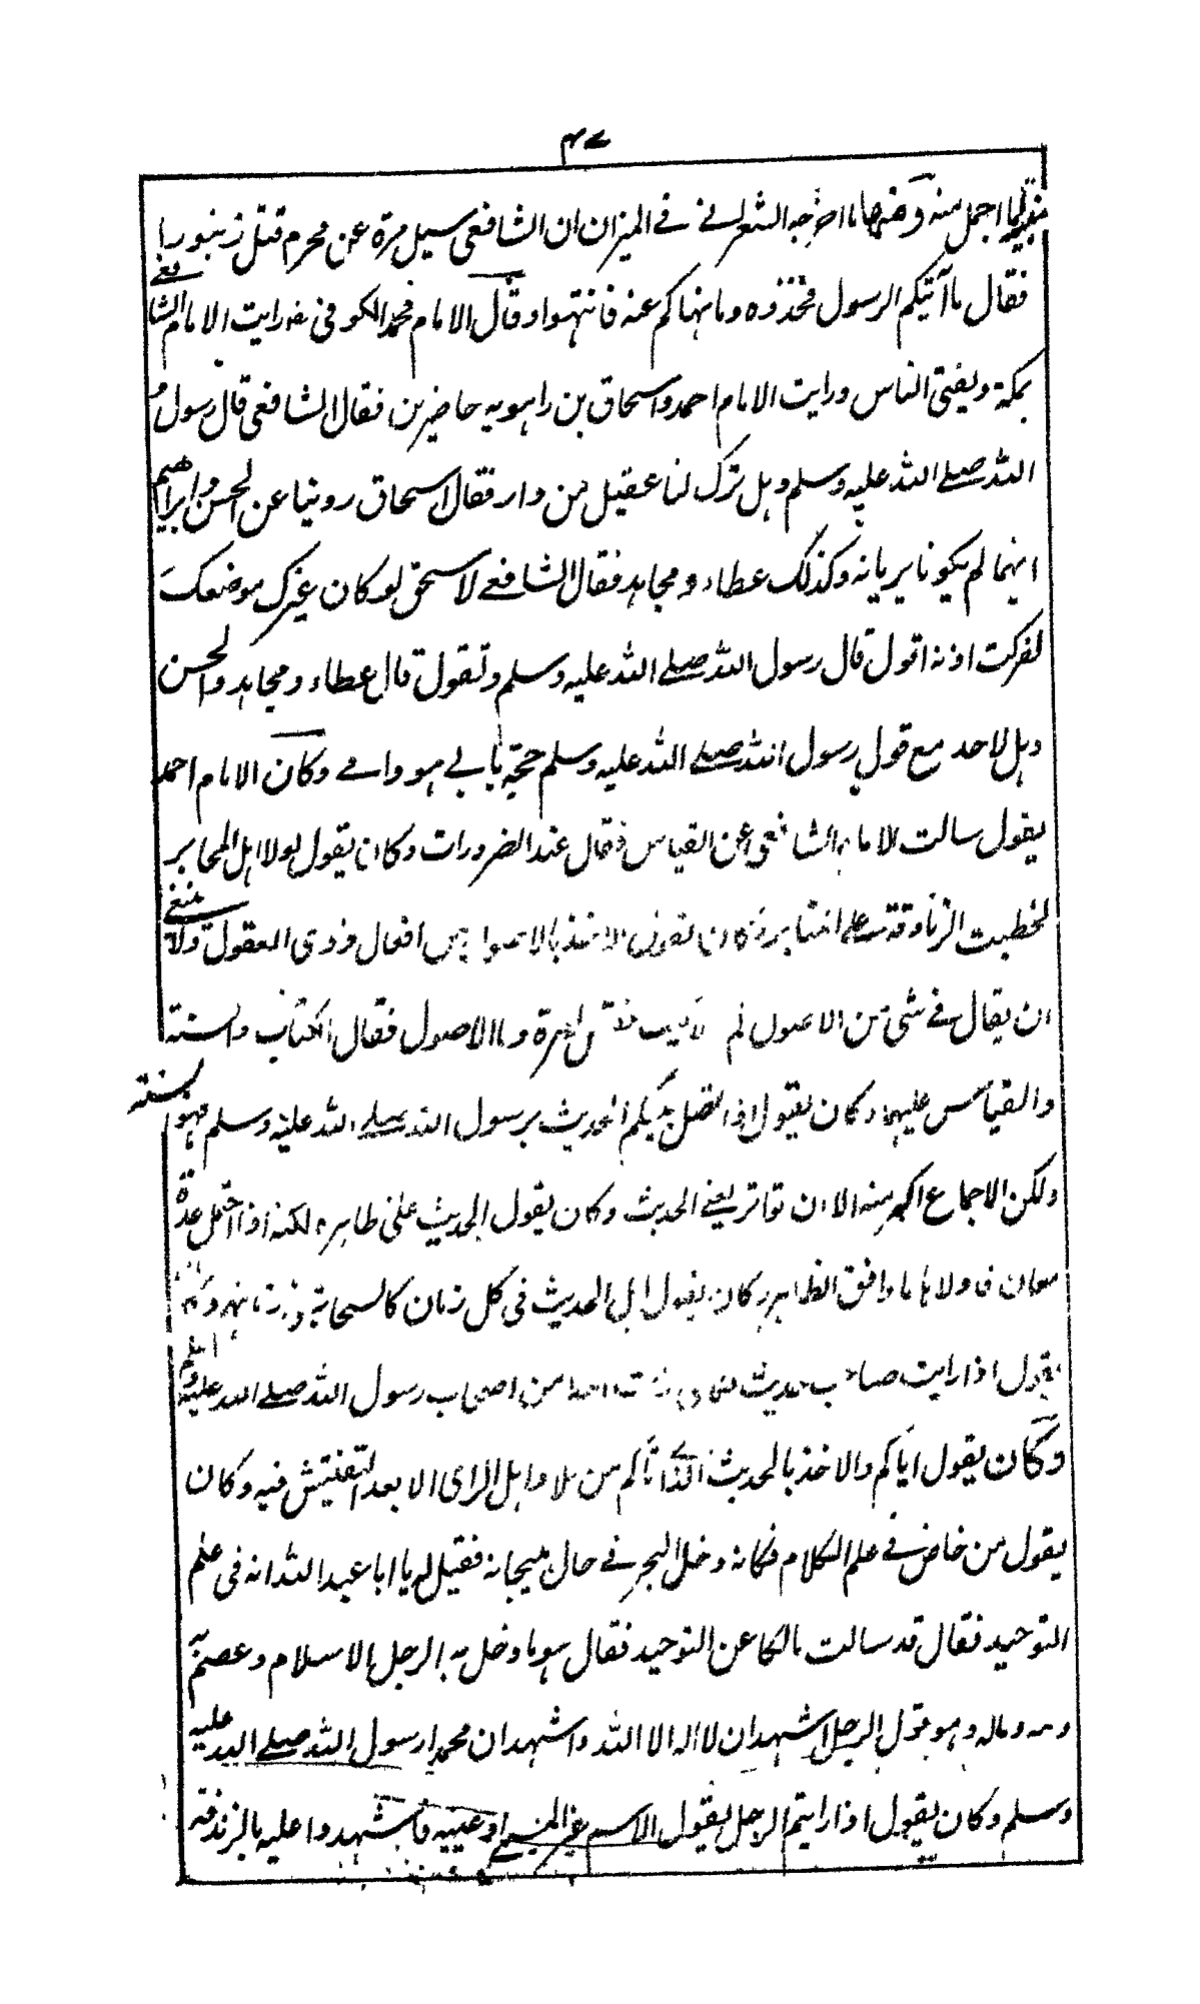 ٤٧
منها اجمل منه ومنها ما اخرجه الشعراني في الميزان ان الشافعي سيل مرة عن محرم قتل زنبورا
فقال ما آتيكم الرسول فخذوه وما نهاكم عنه فانتهوا وقال الامام محمد الكوفي رايت الامام الشافعي
بمكة ويفتى الناس ورايت الامام احمد واسحاق بن راهويه حاضرين فقال الشافعي قال رسول
الله صلے الله عليه وسلم وهل ترك لنا عقيل من دار فقال اسحاق روينا عن الحسن وابراهيم
انهما لم يكونا يريانه وكذلك عطاء ومجاهد فقال الشافعے لاسحق لو كان غيرك موضعك
لفركت اذنه اقول قال رسول الله صلے الله عليه وسلم وتقول قال عطاء ومجاهد والحسن
وهل لاحد مع قول رسول الله صلے الله عليه وسلم حجة بابے هو وامے وكان الامام احمد
يقول سالت الامام الشافعي عن القياس فقال عند الضرورات وكان يقول لولا اهل المحابر
لخطبت الزنادقة علے المنابر وكان يقول الاخذ بالاصول من افعال ذوى العقول ولا ينبغے
ان يقال في شئ من الاصول لم ولا كيف فقيل مرة وما الاصول فقال الكتاب والسنة
والقياس عليهما وكان يقول اذا اتصل بيكم الحديث برسول الله صلے الله عليه وسلم فهو السنة
ولكن الاجماع اكبر منه الا ان تواتر يعنے الحديث وكان يقول الحديث على ظاهره لكنه اذا احتمل عدة
معان فاولاها ما وافق الظاهر وكان يقول اهل الحديث في كل زمان كالصحابة في زمانهم وكان
يقول اذا رايت صاحب حديث فكاني رايت احدا من اصحاب رسول الله صلے الله عليه وسلم
وكان يقول اياكم والاخذ بالحديث الذي اتاكم من بلاد اهل الراى الا بعد التفتيش فيه وكان
يقول من خاض في علم الكلام فكانه دخل البحر في حال هيجانه فقيل له يا ابا عبد الله انه في علم
التوحيد فقال قد سالت مالكا عن التوحيد فقال هو ما دخل به الرجل الاسلام وعصم به
دمه وماله وهو قول الرجل اشهد ان لا اله الا الله واشهد ان محمدا رسول الله صلے الله عليه
وسلم وكان يقول اذا رايتم الرجل يقول الاسم غير المسمے او عينه فاشهدوا عليه بالزندقة